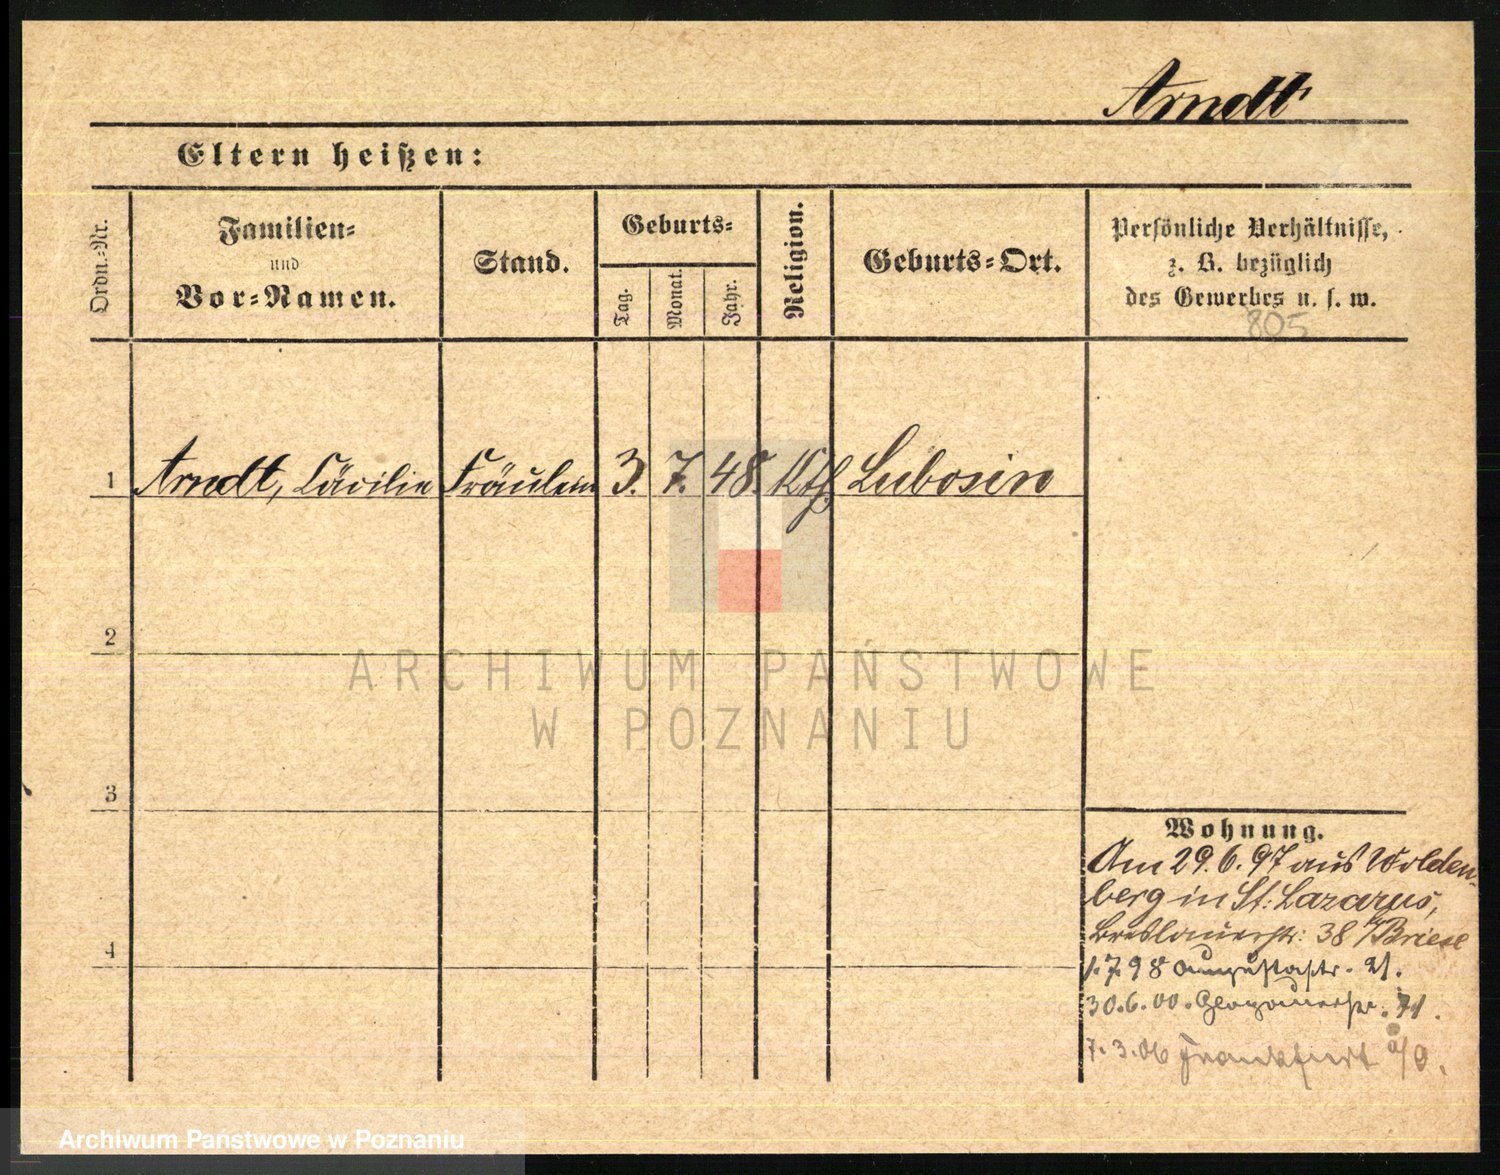 Arndt
Eltern heißen:
Ordn.-Nr.
Familien-
und
Vor-Namen.
Stand.
Geburts-
Tag.
Monat.
Jahr.
Religion.
Geburts-Ort.
Persönliche Verhältnisse,
z. B. bezüglich
des Gewerbes u. s. w.
805
1 Arndt, Cäcilie Fräulein 3. 7. 48. Kth. Lubosin
2
3
4
Wohnung.
Am 29.6.97 aus Wolden-
berg in St. Lazarus,
Breslauerstr: 38 b/Briese
1.7.98 Augustastr. 21.
30.6.00. Glogauerstr. 71.
7.3.06 Frankfurt a/O.
ARCHIWUM PAŃSTWOWE
W POZNANIU
Archiwum Państwowe w Poznaniu